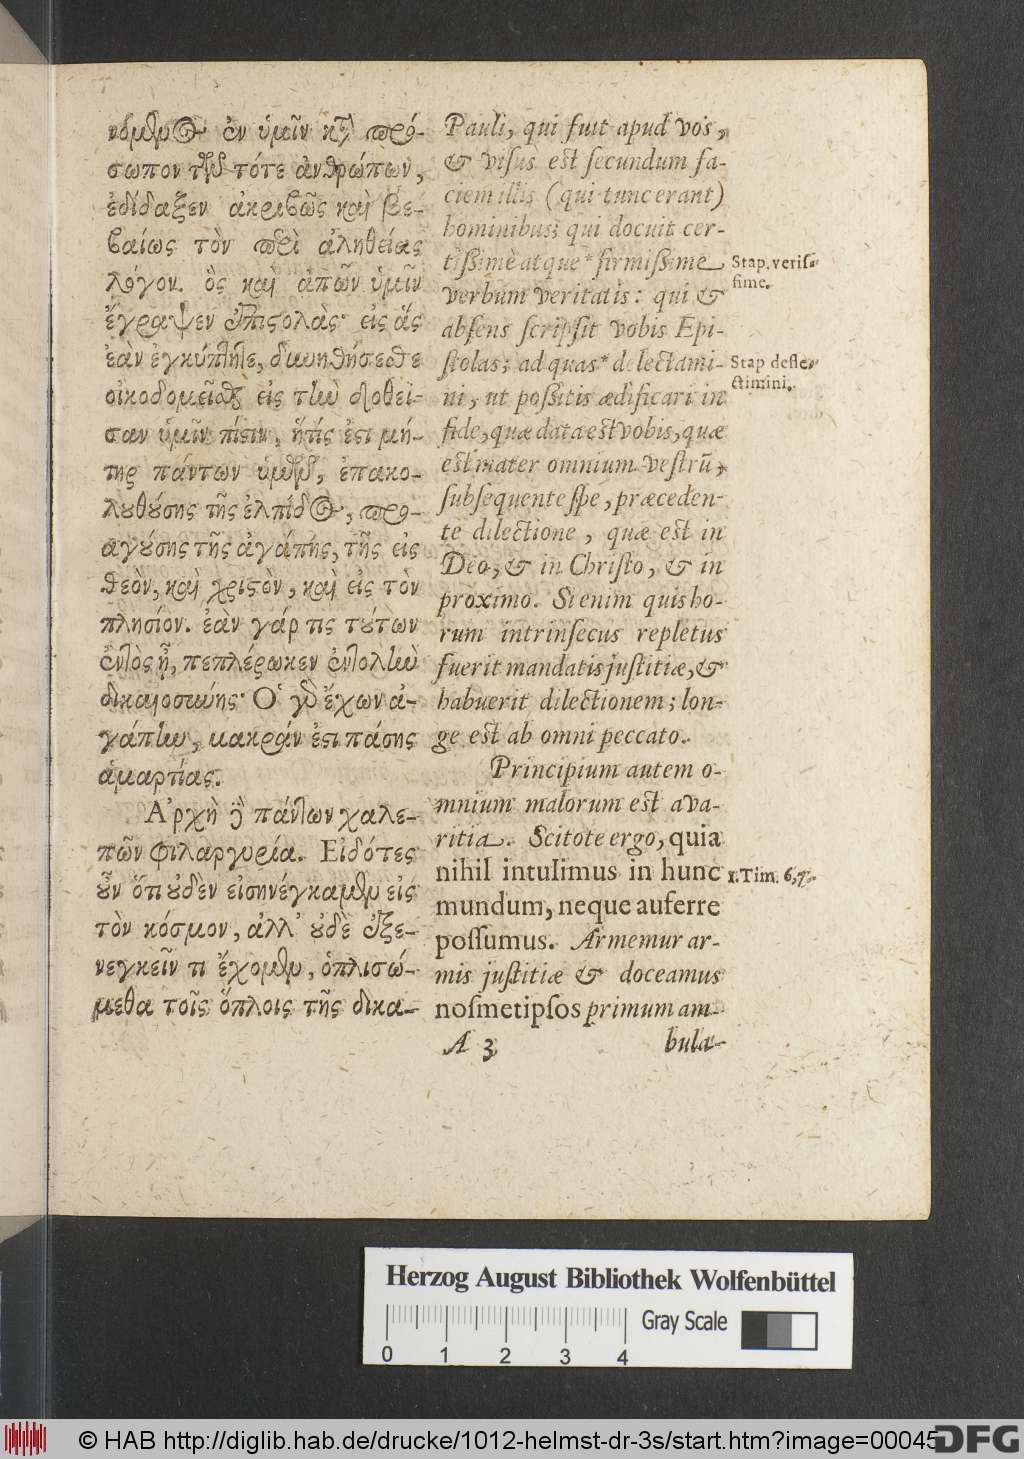 νόμενος ἐν ὑμῖν κατὰ πρό-
σωπον τῶν τότε ἀνθρώπων,
ἐδίδαξεν ἀκριβῶς καὶ βε-
βαίως τὸν περὶ ἀληθείας
λόγον. ὃς καὶ ἀπὼν ὑμῖν
ἔγραψεν ἐπιστολὰς· εἰς ἃς
ἐὰν ἐγκύπτητε, δυνηθήσεσθε
οἰκοδομεῖσθαι εἰς τὴν δοθεῖ-
σαν ὑμῖν πίστιν, ἥτις ἐστι μή-
τηρ πάντων ὑμῶν, ἐπακο-
λουθούσης τῆς ἐλπίδος, προ-
αγούσης τῆς ἀγάπης, τῆς εἰς
θεὸν, καὶ χριστὸν, καὶ εἰς τὸν
πλησίον. ἐὰν γάρ τις τούτων
ἐντὸς ᾖ, πεπλέρωκεν ἐντολὴν
δικαιοσύνης· Ὁ γὰρ ἔχων ἀ-
γάπην, μακράν ἐστι πάσης
ἁμαρτίας.
Ἀρχὴ δὲ πάντων χαλε-
πῶν φιλαργυρία. Εἰδότες
οὖν ὅτι οὐδὲν εἰσηνέγκαμεν εἰς
τὸν κόσμον, ἀλλ' οὐδὲ ἐξε-
νεγκεῖν τι ἔχομεν, ὁπλισώ-
μεθα τοῖς ὅπλοις τῆς δικα-
Pauli, qui fuit apud vos,
& visus est secundum fa-
ciem illis (qui tunc erant)
hominibus; qui docuit cer-
tissimè atque * firmissime
verbum veritatis: qui &
absens scripsit vobis Epi-
stolas; ad quas * delectami-
ni, ut possitis ædificari in
fide, quæ data est vobis, quæ
est mater omnium vestrū,
subsequente spe, præceden-
te dilectione, quæ est in
Deo, & in Christo, & in
proximo. Si enim quis ho-
rum intrinsecus repletus
fuerit mandatis justitiæ, &
habuerit dilectionem; lon-
ge est ab omni peccato.
Principium autem o-
mnium malorum est ava-
ritia. Scitote ergo, quia
nihil intulimus in hunc
mundum, neque auferre
possumus. Armemur ar-
mis justitiæ & doceamus
nosmetipsos primum am-
A 3
bula-
Stap. veris-
sime.
Stap defle-
ctimini.
1. Tim. 6, 7.
Herzog August Bibliothek Wolfenbüttel
Gray Scale
0 1 2 3 4
© HAB http://diglib.hab.de/drucke/1012-helmst-dr-3s/start.htm?image=00045
DFG